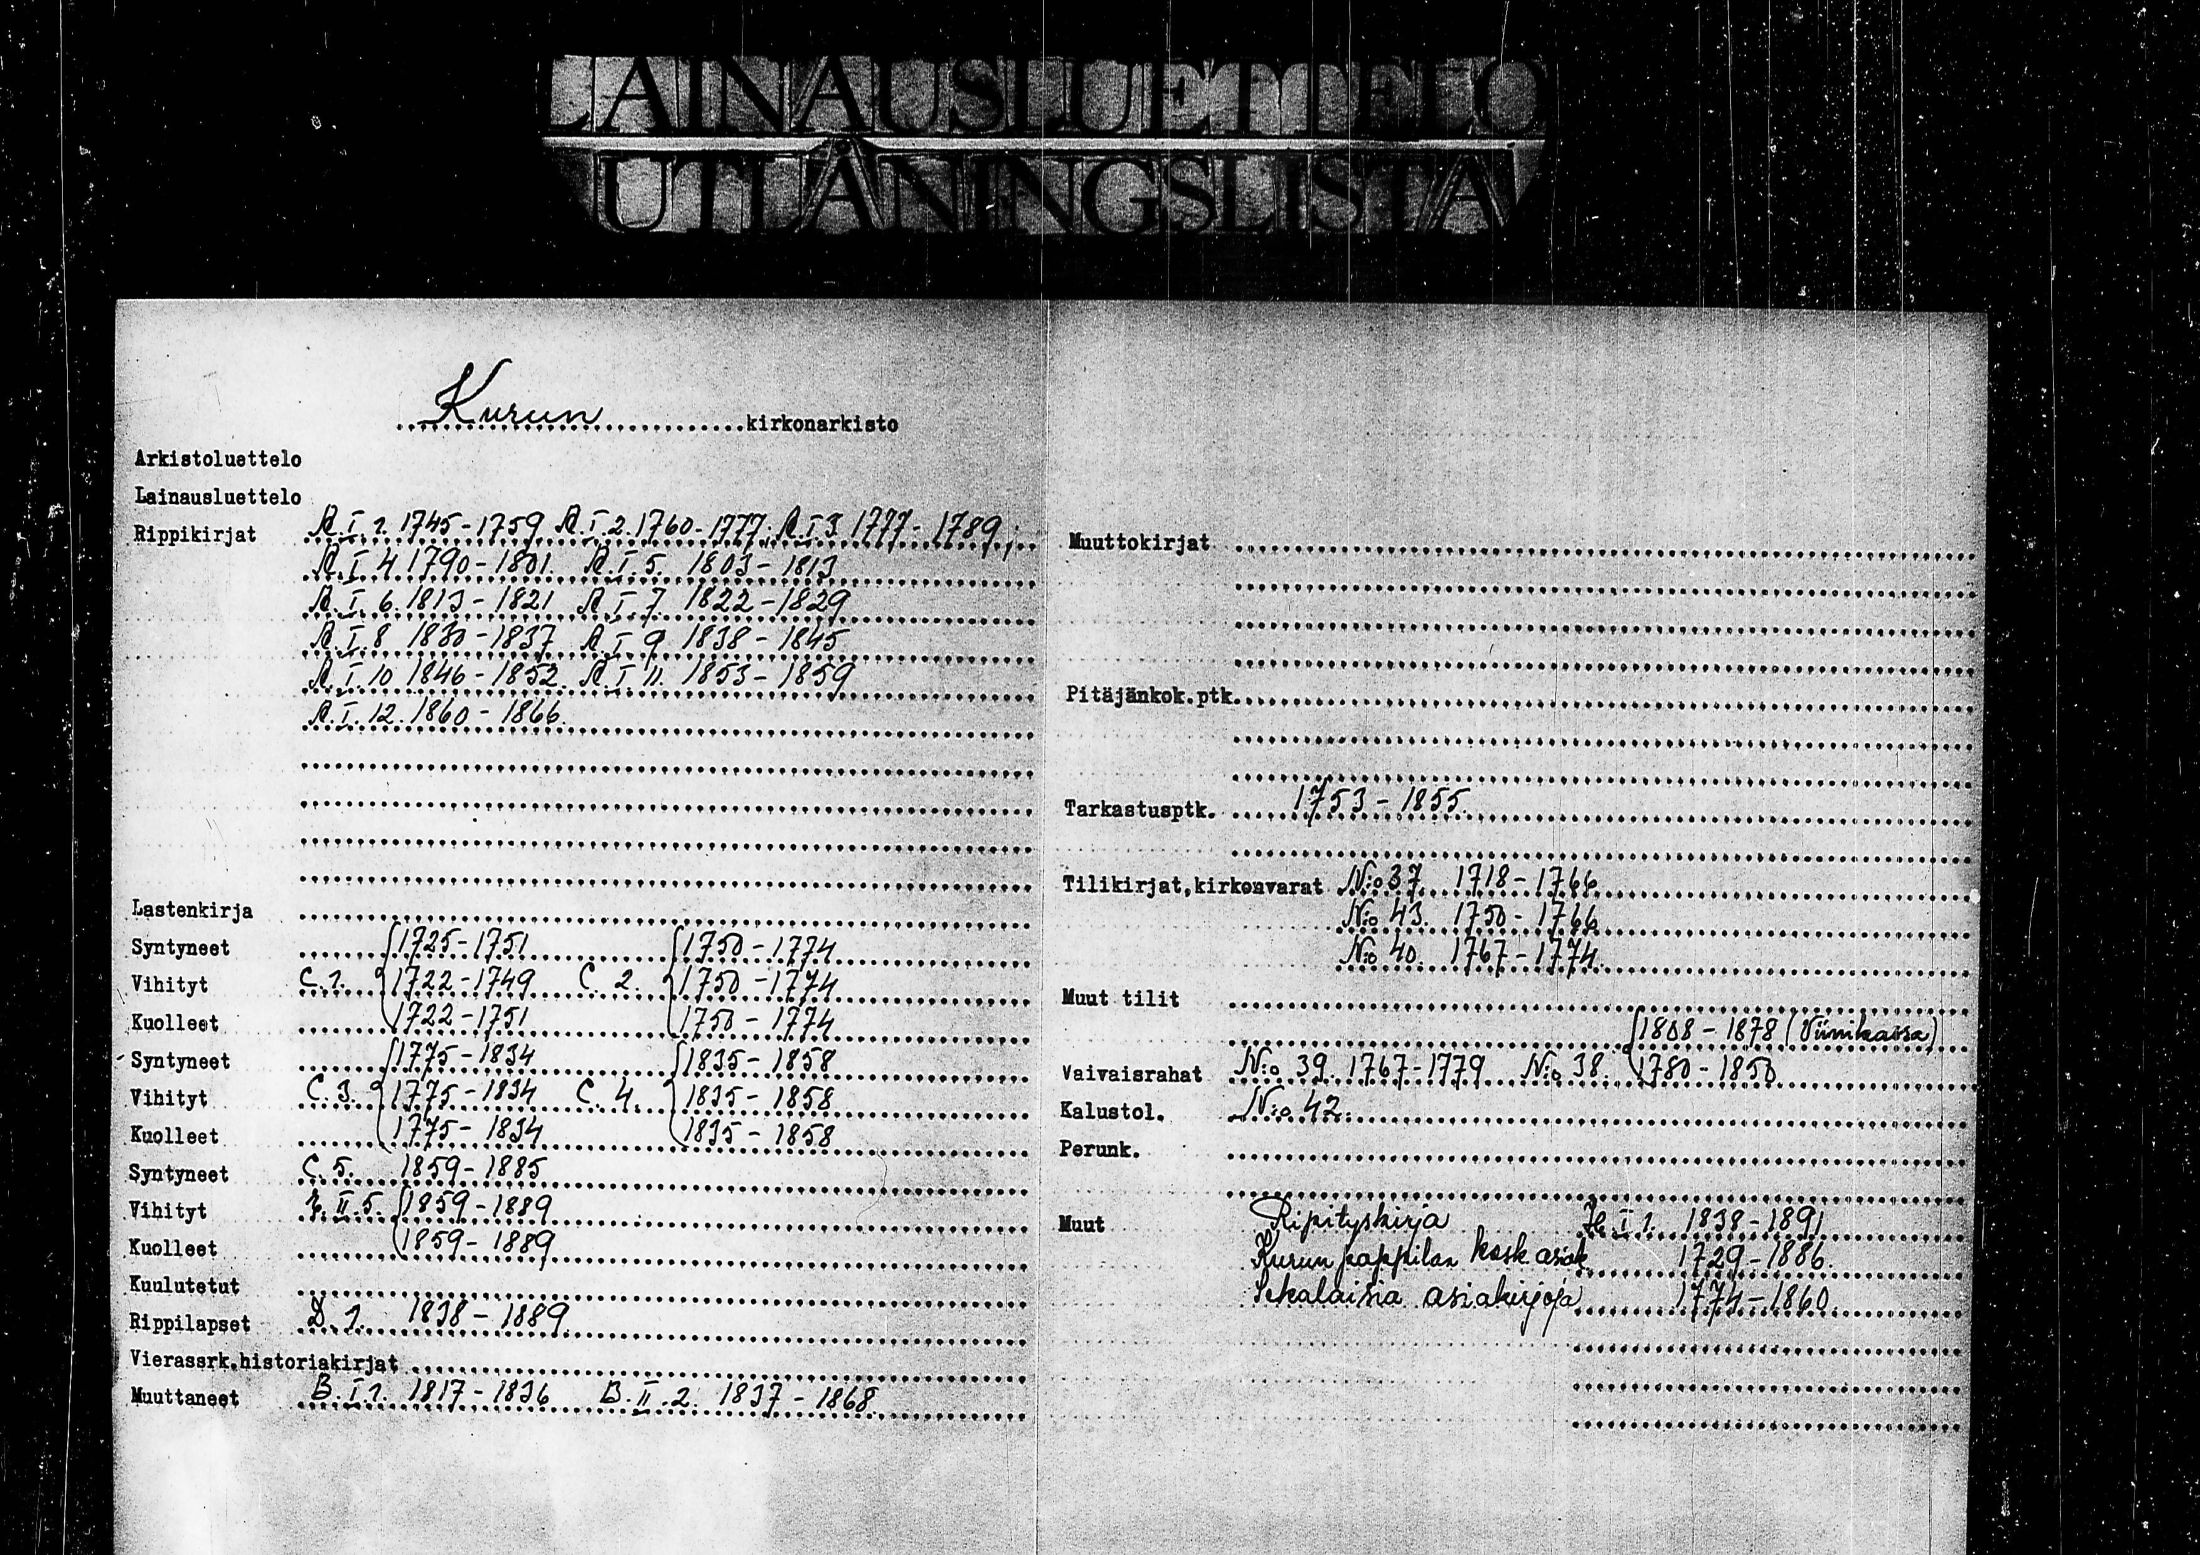 LAINAUSLUETTELO
UTLÅNINGSLISTA
Kurun kirkonarkisto
Arkistoluettelo
Lainausluettelo
Rippikirjat A.I.1. 1745-1759 A.I.2. 1760-1777; A.I.3 1777-1789;
A.I.4 1790-1801. A.I.5. 1803-1813
A.I.6. 1813-1821 A.I.7. 1822-1829
A.I.8 1830-1837 A.I.9 1838-1845
A.I.10 1846-1852. A.I.11. 1853-1859
A.I.12. 1860-1866.
Lastenkirja
Syntyneet 1725-1751 1750-1774
Vihityt C.1. 1722-1749 C. 2. 1750-1774
Kuolleet 1722-1751 1750-1774
Syntyneet 1775-1834 1835-1858
Vihityt C.3. 1775-1834 C. 4. 1835-1858
Kuolleet 1775-1834 1835-1858
Syntyneet C.5. 1859-1885
Vihityt II.5. 1859-1889
Kuolleet 1859-1889
Kuulutetut
Rippilapset D.1. 1838-1889.
Vierassrk.historiakirjat
Muuttaneet B.I.1. 1817-1836 B.II.2. 1837-1868
Muuttokirjat
Pitäjänkok.ptk.
Tarkastusptk. 1753-1855.
Tilikirjat,kirkonvarat N:o 37. 1718-1766
N:o 43. 1750-1766
N:o 40. 1767-1774.
Muut tilit
1808-1878 (Viinikassa)
Vaivaisrahat N:o 39. 1767-1779 N:o 38. 1780-1850
Kalustol. N:o 42.
Perunk.
Muut Ripityskirja I 1. 1838-1891
Kurun pappilan kosk asiak. 1729-1886.
Sekalaisia asiakirjoja 1774-1860.